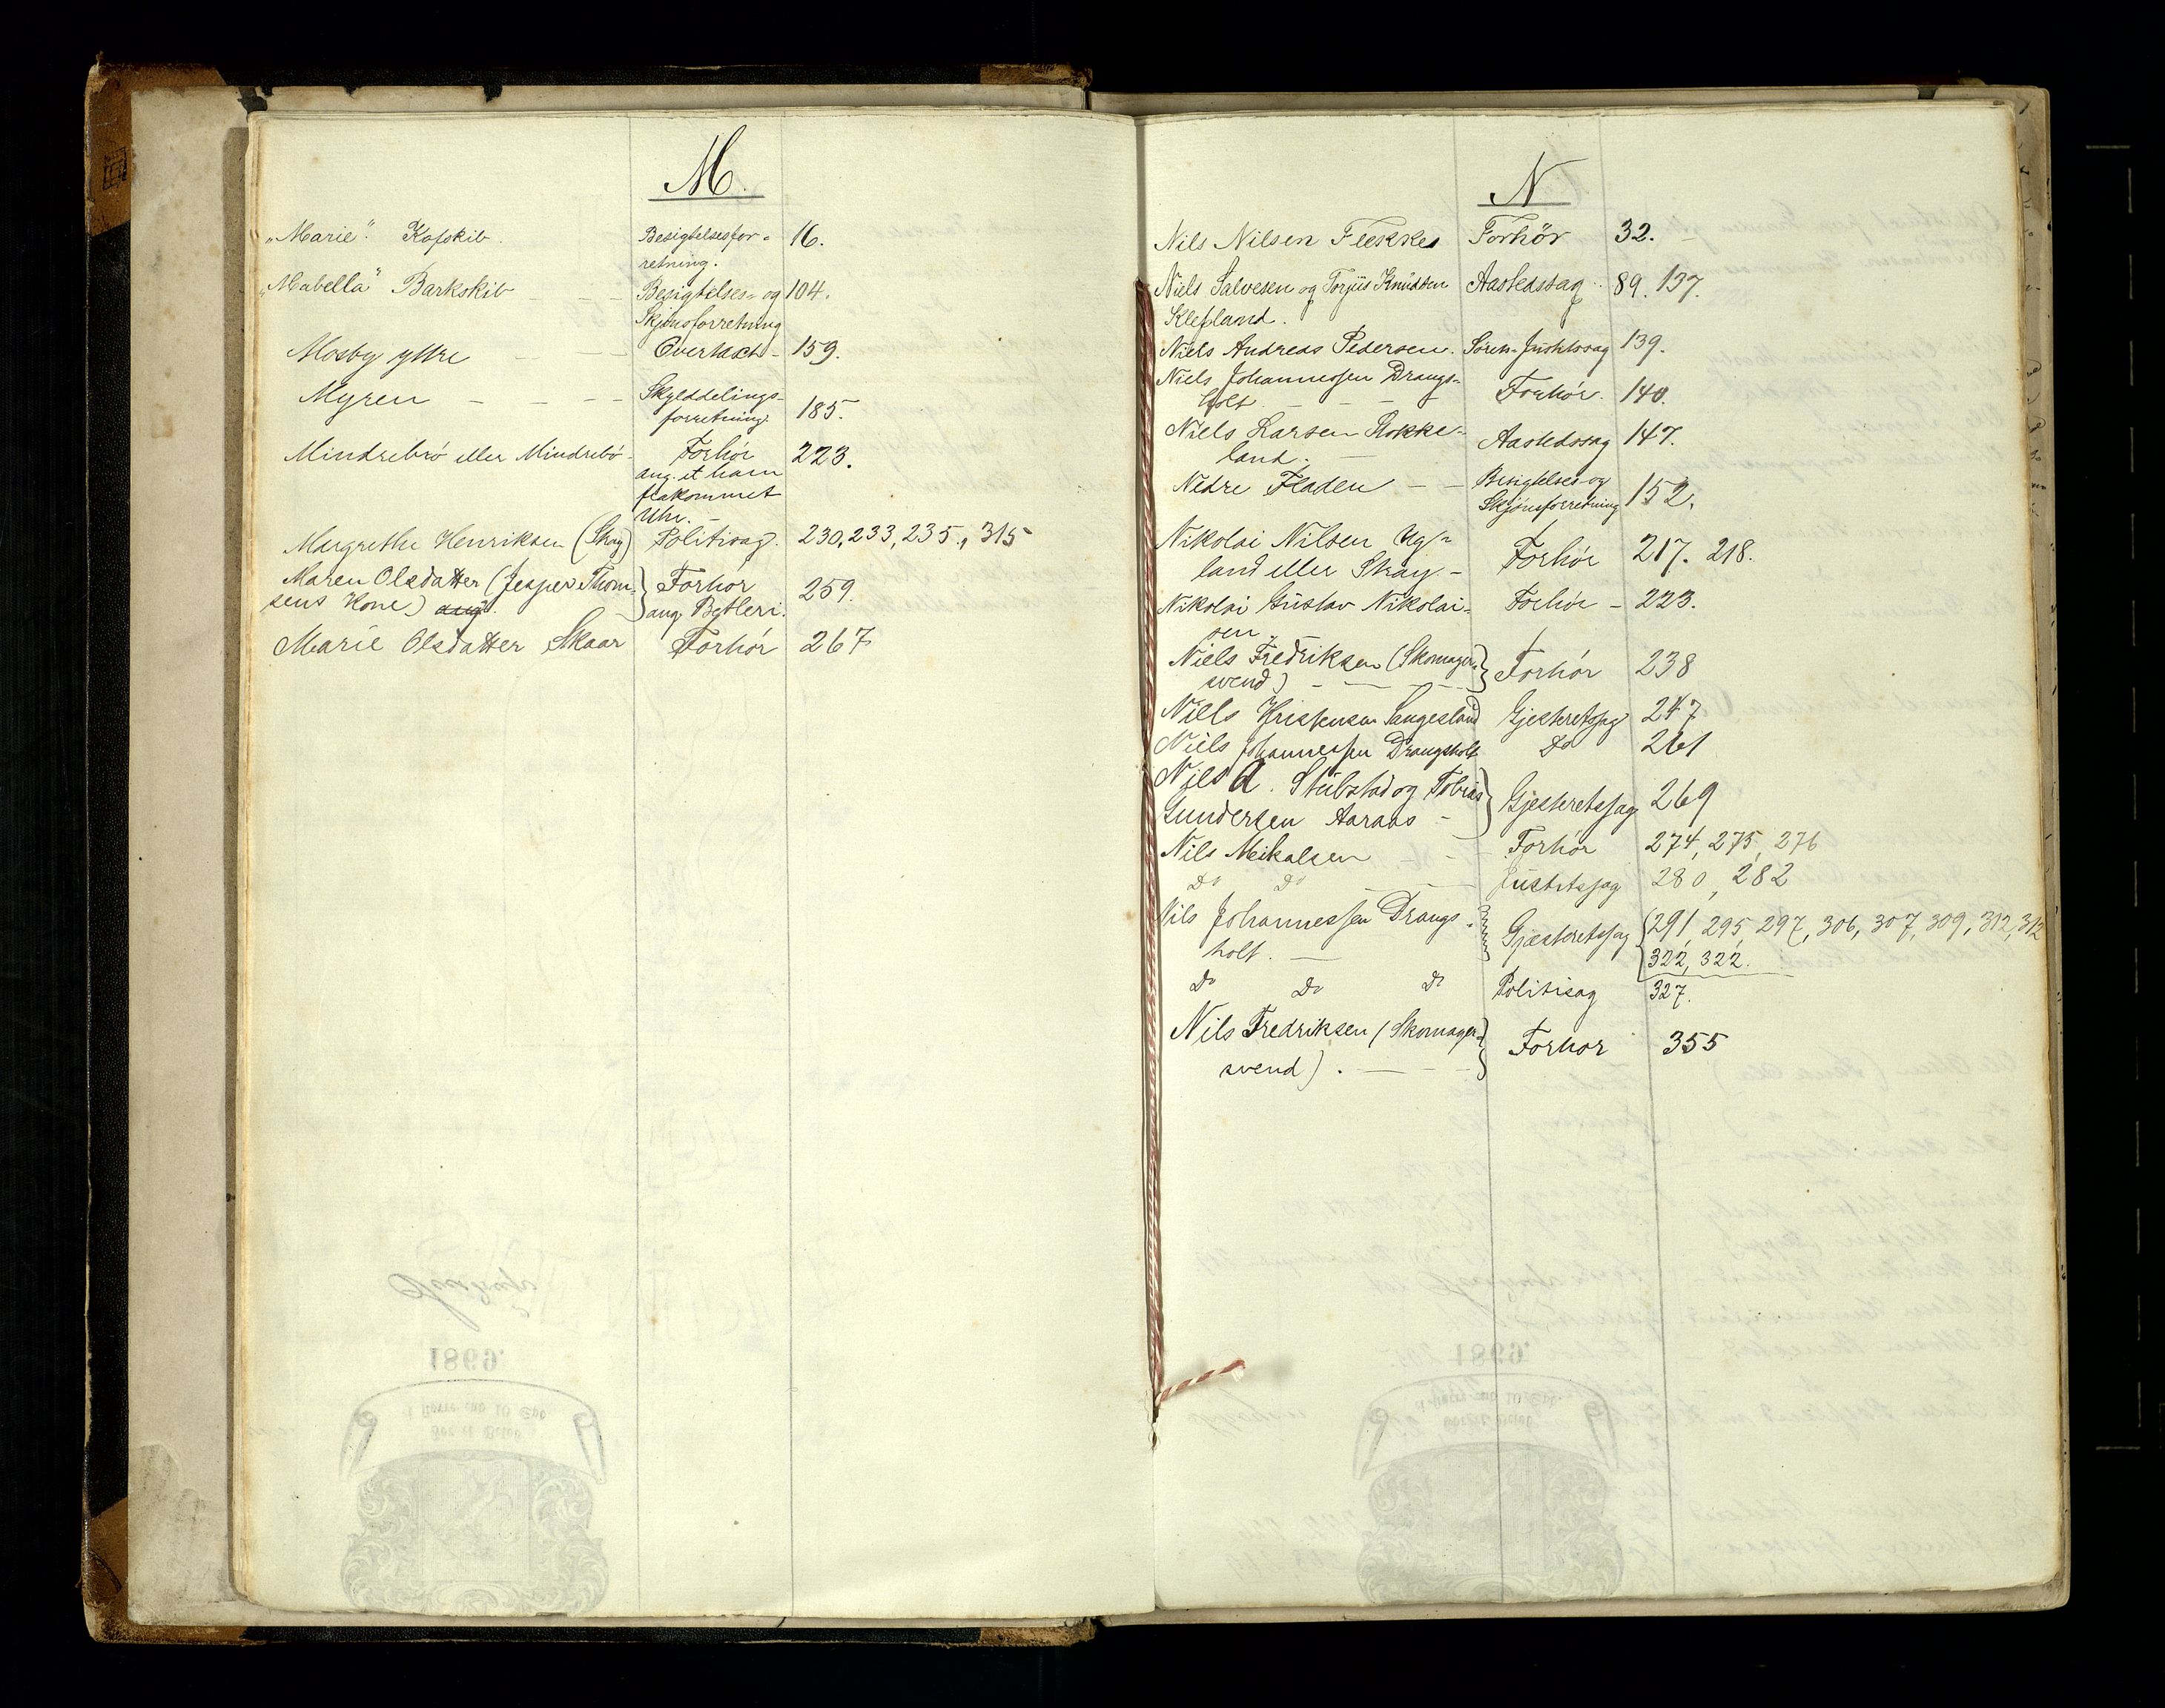 M.
„Marie“. Kofskib. Besigtelsesfor-
retning. 16.
„Mabella“ Barkskib — — Besigtelses- og 104.
Skjönsforretning
Mosby yttre — — Overtaxt- 159.
Myren — — — Skylddelings-
forretning. 185.
Mindrebrö eller Mindrebö- Forhör 223.
ang. et ham
frakommet
Uhr. —
Margrethe Henriksen (Skay) Politisag. 230, 233, 235., 315
Maren Olsdatter (Jesper Thom- Forhör
sens Kone) ang. ang. Betleri. 259.
Marie Olsdatter Skaar Forhör 267
N
Nils Nilsen Flekke Forhör 32.
Niels Salvesen og Torjus Knudsen Aastedssag. 89. 137.
Klepland.
Niels Andreas Pedersen. Justitssag 139.
Niels Johannessen Drangs-
holt. — — — Forhör. 140.
Niels Larsen
land. — Aastedssag 147.
Nedre Fladen — — Besigtelses og
Skjönsforretning 152.
Nikolai Nilsen Ug-
land eller Skay. — Forhör 217. 218.
Nikolai Gustav Nikolai- Forhör — 223.
sen.
Niels Fredriksen (Skomager- Forhör 238
svend) — — —
Niells Kristensen Langesland Gjesteretssag 247
Niels Johannessen Drangsholt Do 261
Nils A. Stubstad og Tobias
Gundersen Aaraas — Gjesteretssag 269
Nils Meikalsen — — Forhör 274, 275, 276
Do Do — — Justitssag 280, 282
Nils Johannessen Drangs- Gjæsteretssag 291, 295, 297, 306, 307, 309, 312, 312
holt. — 322, 322.
Do Do Do Politisag 327.
Nils Fredriksen (Skomager- Forhor 355
svend). — — —